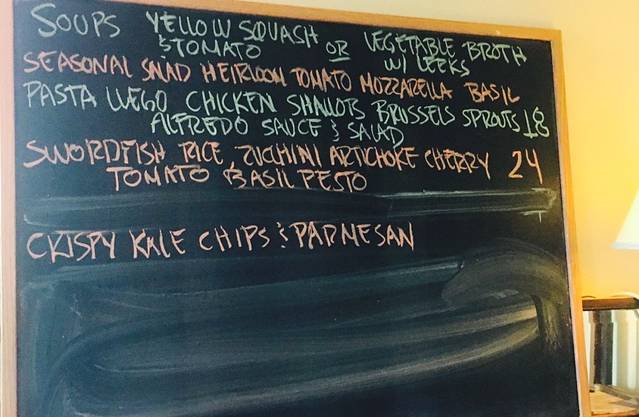 SOUPS YELLOW SQUASH & TOMATO OR VEGETABLE BROTH W/ LEEKS
SEASONAL SALAD HEIRLOOM TOMATO MOZZARELLA BASIL
PASTA W EGO CHICKEN SHALLOTS BRUSSELS SPROUTS 18
ALFREDO SAUCE & SALAD
SWORDFISH RICE, ZUCHINI ARTICHOKE CHERRY 24
TOMATO & BASIL PESTO
CRISPY KALE CHIPS & PARMESAN